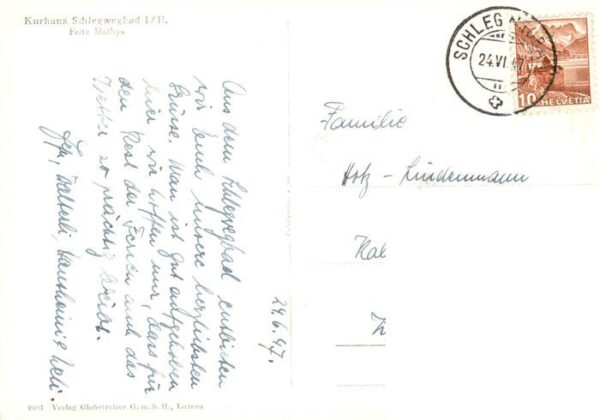 Kurhaus Schlegwegbad i/E.
Fritz Mathys
24.VI.47
10 HELVETIA
24.6.47.
Aus dem Schlegwegbad entbieten
wir Euch unsere herzlichsten
Grüsse. Man ist gut aufgehoben
hier wir hoffen nur, dass für
den Rest der Ferien auch das
Wetter so prächtig bleibt.
Familie
Hotz-Lindenmann
Verlag Globetrotter G.m.b.H., Luzern